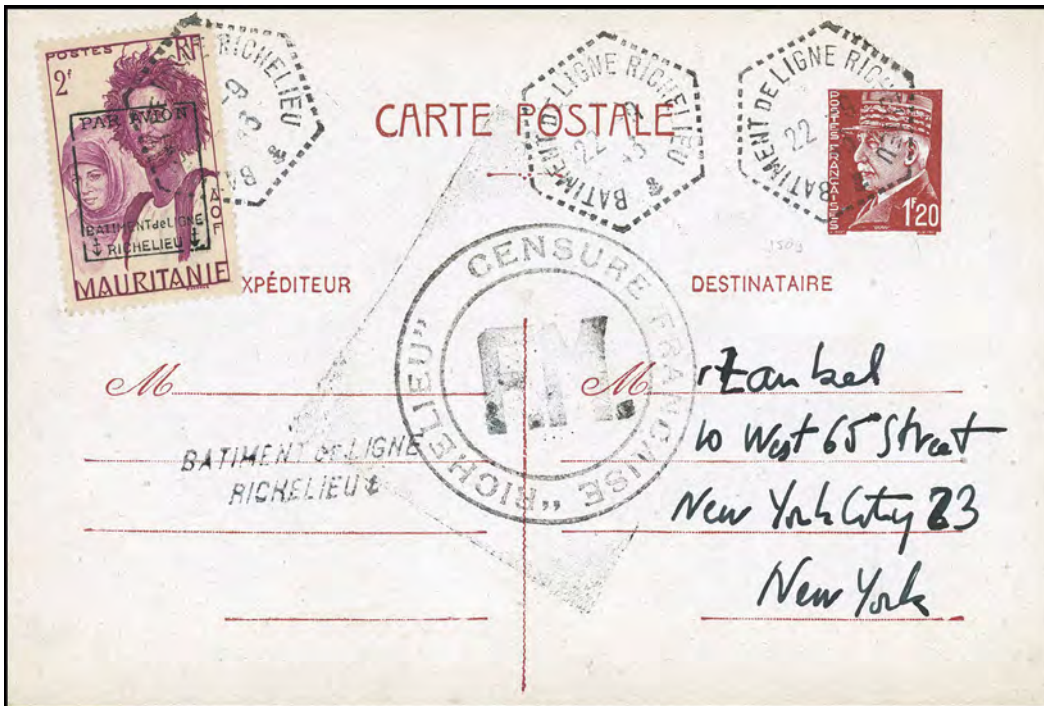 POSTES RF
2f
PAR AVION
AOF
BATIMENT de LIGNE
RICHELIEU
MAURITANIE
BATIMENT DE LIGNE RICHELIEU
22 -9
BATIMENT DE LIGNE RICHELIEU
22
CARTE POSTALE
POSTES FRANÇAISES
1F20
EXPÉDITEUR
DESTINATAIRE
CENSURE FRANCAISE "RICHELIEU"
F.M.
M
BATIMENT de LIGNE
RICHELIEU
M Zankel
10 West 65 Street
New York City 23
New York